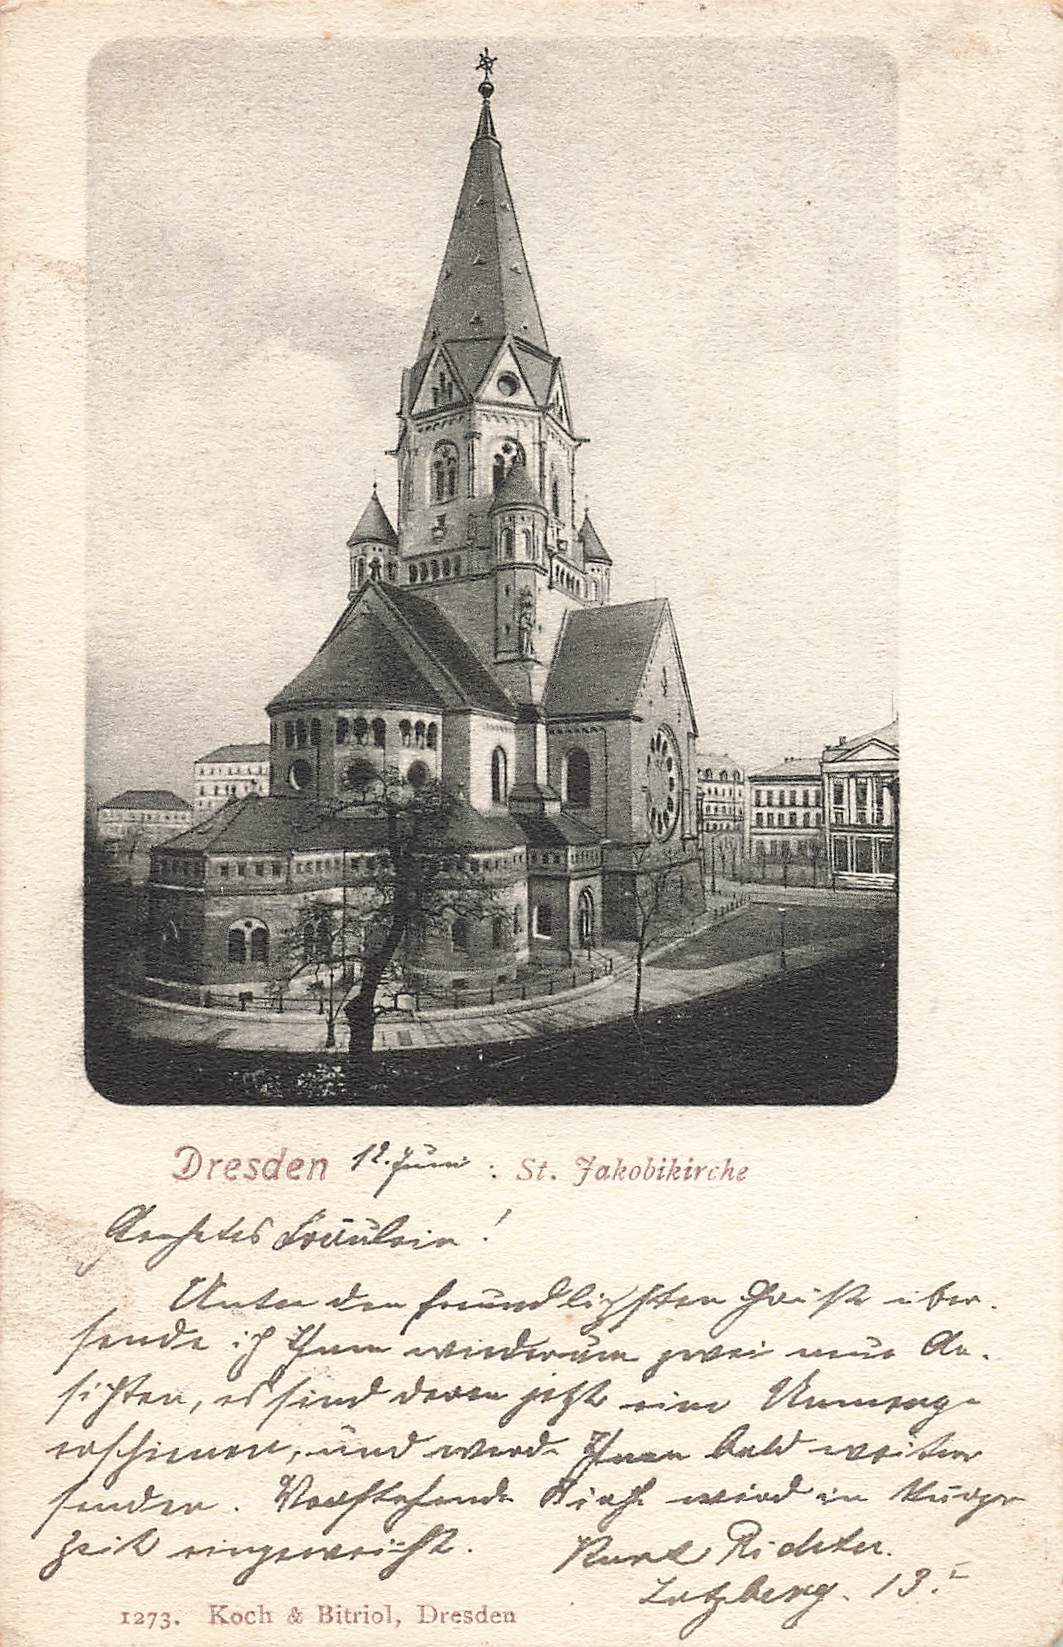 Dresden 12. Juni : St. Jakobikirche
Geehrtes Fräulein!
Unter den freundlichsten Grüßen über-
sende ich Ihnen wiederum zwei neue An-
sichten, es sind deren jetzt eine Unmenge
erschienen, und werde Ihnen bald weitere
senden. Vorstehende Kirche wird in kurzer
Zeit eingeweiht.
Kurt Richter.
13.
1273. Koch & Bitriol, Dresden